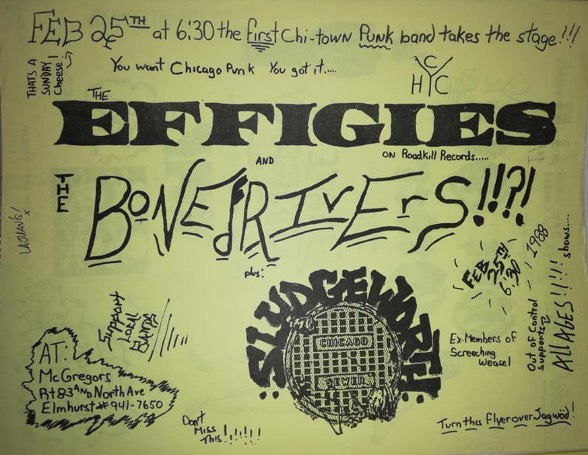 FEB 25TH at 6:30 the first Chi-town Punk band takes the stage!!!
THATS A
SUNDAY!
Cheese!
You want Chicago Punk You got it....
C
H Y C
THE
EFFIGIES
ON Roadkill Records.....
AND
THE
BONEDRIVERS!!?!
plus:
FEB
25TH
6:30
1988
SUPPORT
LOCAL
BANDS
SLUDGEWORTH
CHICAGO
SEWER
Ex-Members of
Screeching
Weasel
Out of Control
Supports
ALL AGES!!!!! shows....
AT:
McGregors
Rt 83 AND North Ave
Elmhurst # 941-7650
Don't
Miss
This!!!!!!
Turn this flyer over Jagwod!